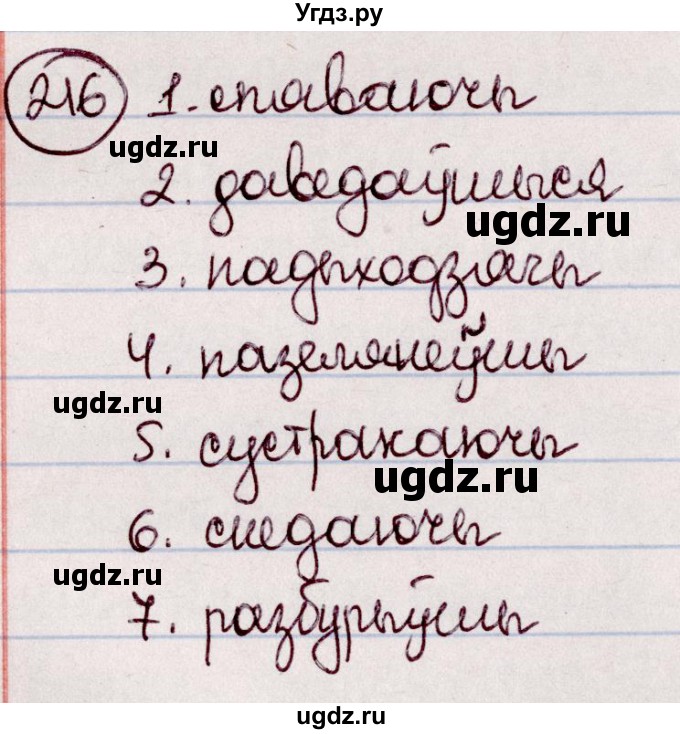 Угдз.ру
216 1. спяваючы
ugdz.ru
2. даведаўшыся
ugdz.ru
3. падыходзячы
4. пазелянеўшы
ugdz.ru
5. сустракаючы
ugdz.ru
6. снедаючы
ugdz.ru
7. разбурыўшы
ugdz.ru